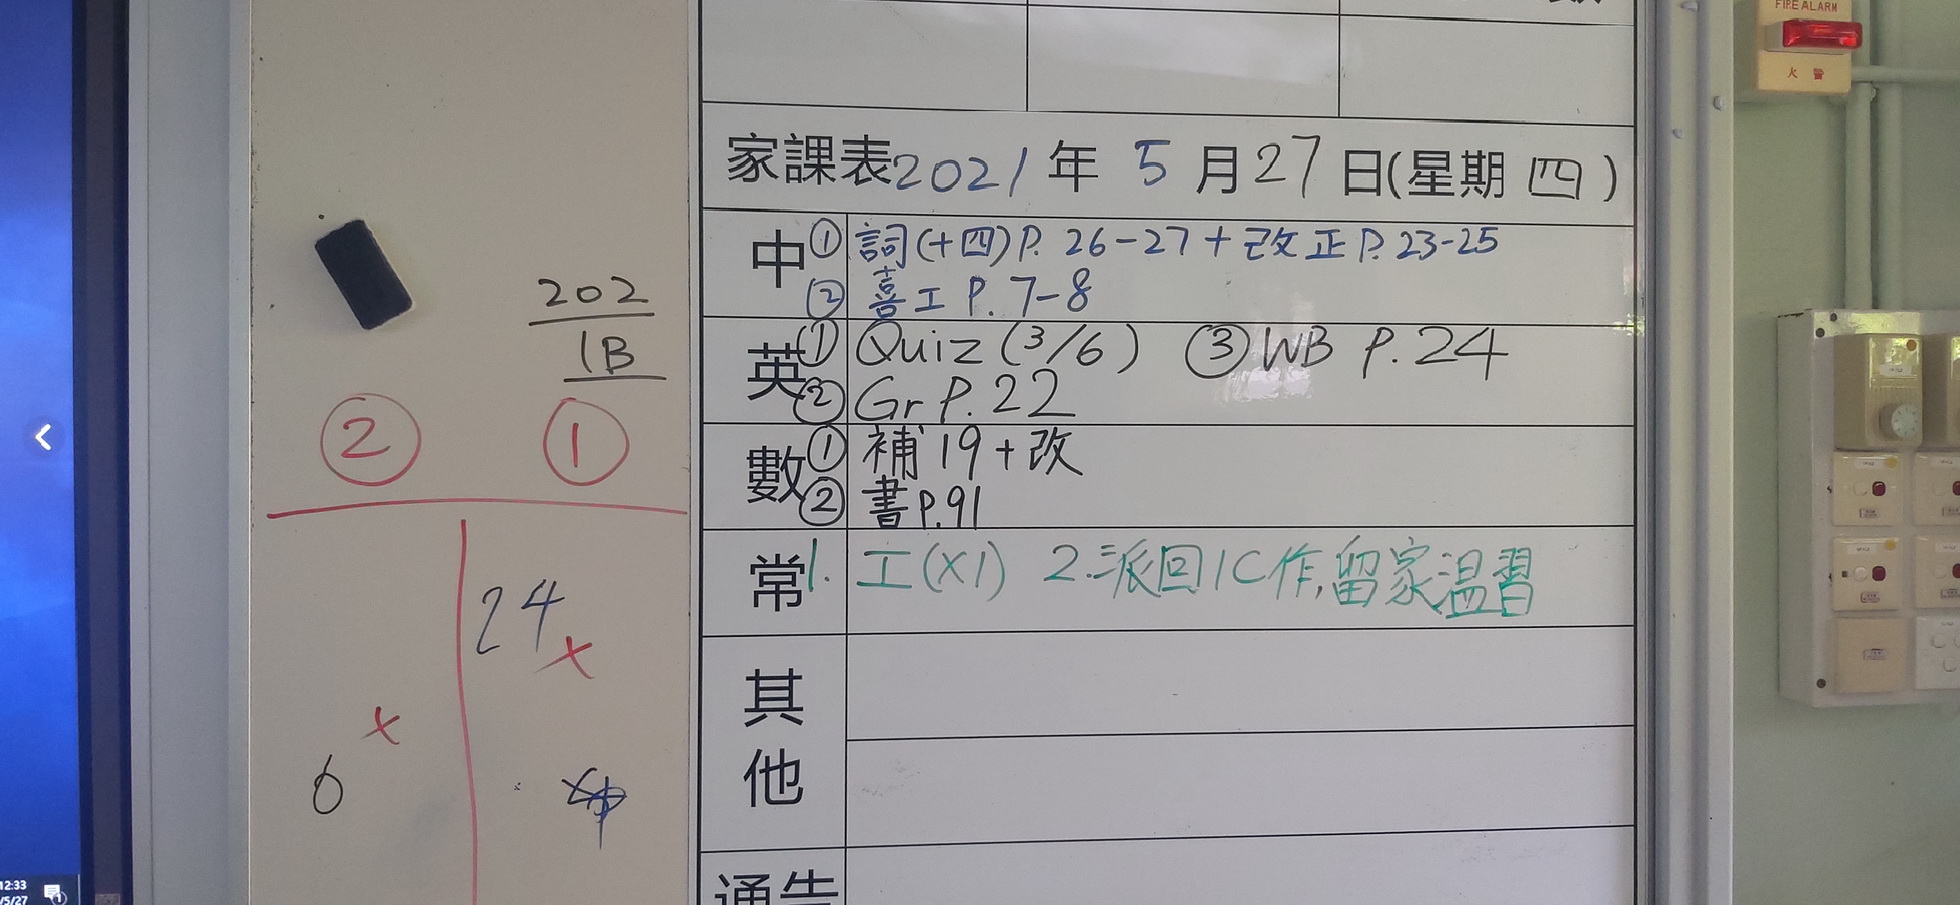 FIRE ALARM
火警
家課表2021年5月27日(星期四)
中 ① 詞(十四)P. 26-27+改正P. 23-25
② 喜工 P. 7-8
英 ① Quiz (3/6) ③ WB P. 24
② Gr P. 22
數 ① 補19+改
② 書P.91
常 1. 工(X1) 2.派回1C作,留家温習
其他
通告
202
1B
② ①
24
x
x
6
12:33
/5/27